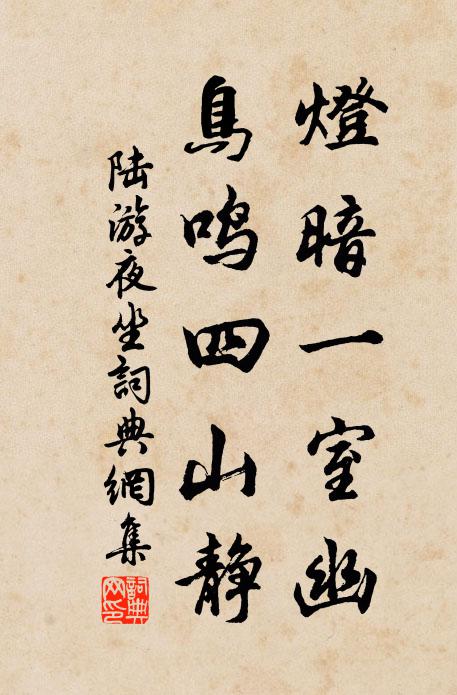 燈暗一室幽
鳥鳴四山静
陆游夜坐詞典網集
詞典
网印